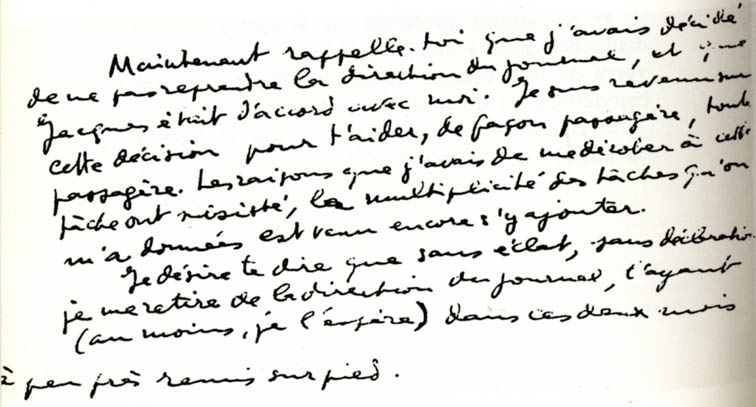 Maintenant rappelle-toi que j'avais décidé
de ne pas reprendre la direction du journal, et que
Jacques était d'accord avec moi. Je suis revenu sur
cette décision pour t'aider, de façon passagère, toute
passagère. Les raisons que j'avais de me dérober à cette
tâche ont résisté, la multiplicité des tâches qu'on
m'a données est venu encore s'y ajouter.
Je désire te dire que sans éclat, sans déclaration
je me retire de la direction du journal, l'ayant
(au moins, je l'espère) dans ces deux mois
à peu près remis sur pied.